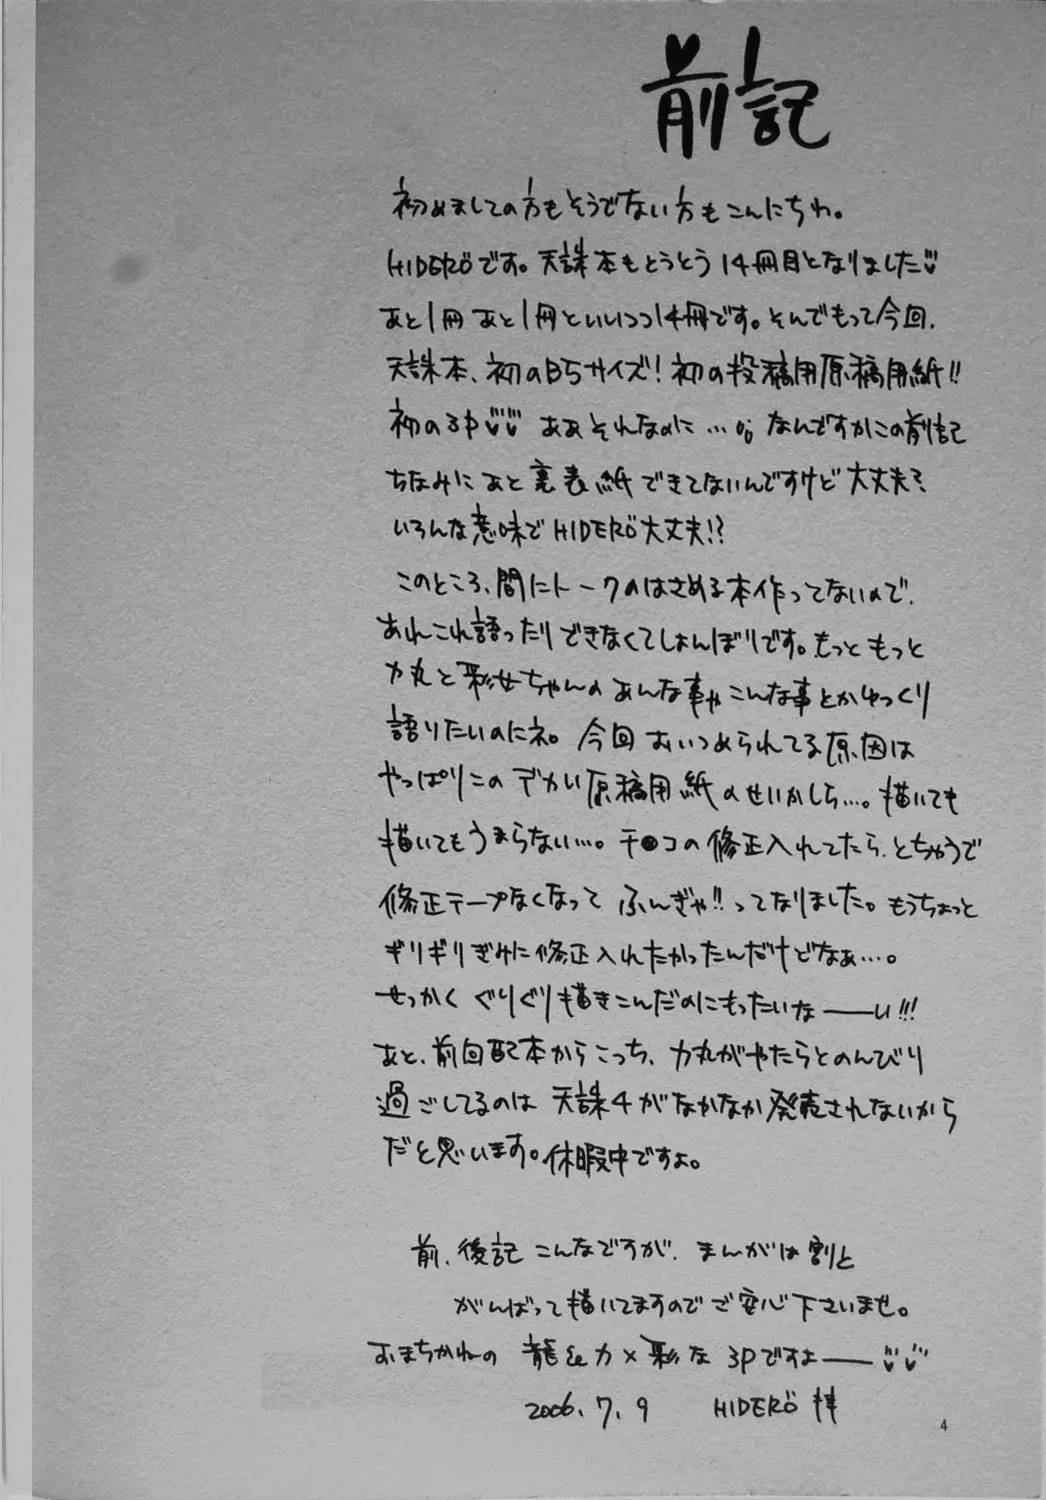 前記
初めましての方もそうでない方もこんにちわ。
HIDERÖです。天誅本もとうとう14冊目となりました
あと1冊あと1冊といいつつ14冊です。そんでもって今回、
天誅本、初のB5サイズ!初の投稿用原稿用紙!!
初の3P♡♡ ああそれなのに…。なんですかこの前記
ちなみにあと裏表紙できてないんですけど大丈夫?
いろんな意味でHIDERÖ大丈夫!?
このところ、間にトークのはさめる本作ってないので、
あれこれ語ったりできなくてしょんぼりです。もっともっと
力丸と彩女ちゃんのあんな事やこんな事とかゆっくり
語りたいのにネ。今回おいつめられてる原因は
やっぱりこのデカい原稿用紙のせいかしら…。描いても
描いてもうまらない…。チ●コの修正入れてたら、とちゅうで
修正テープなくなって ふんぎゃ!!ってなりました。もうちょっと
ギリギリぎみに修正入れたかったんだけどなぁ…。
せっかくぐりぐり描きこんだのにもったいなーーい!!!
あと、前回配本からこっち、力丸がやたらとのんびり
過ごしてるのは天誅4がなかなか発売されないから
だと思います。休暇中ですよ。
前、後記こんなですが、まんがは割と
がんばって描いてますのでご安心下さいませ。
おまちかねの 龍&力×彩な3Pですよーー♡♡
2006.7.9 HIDERÖ拝
4